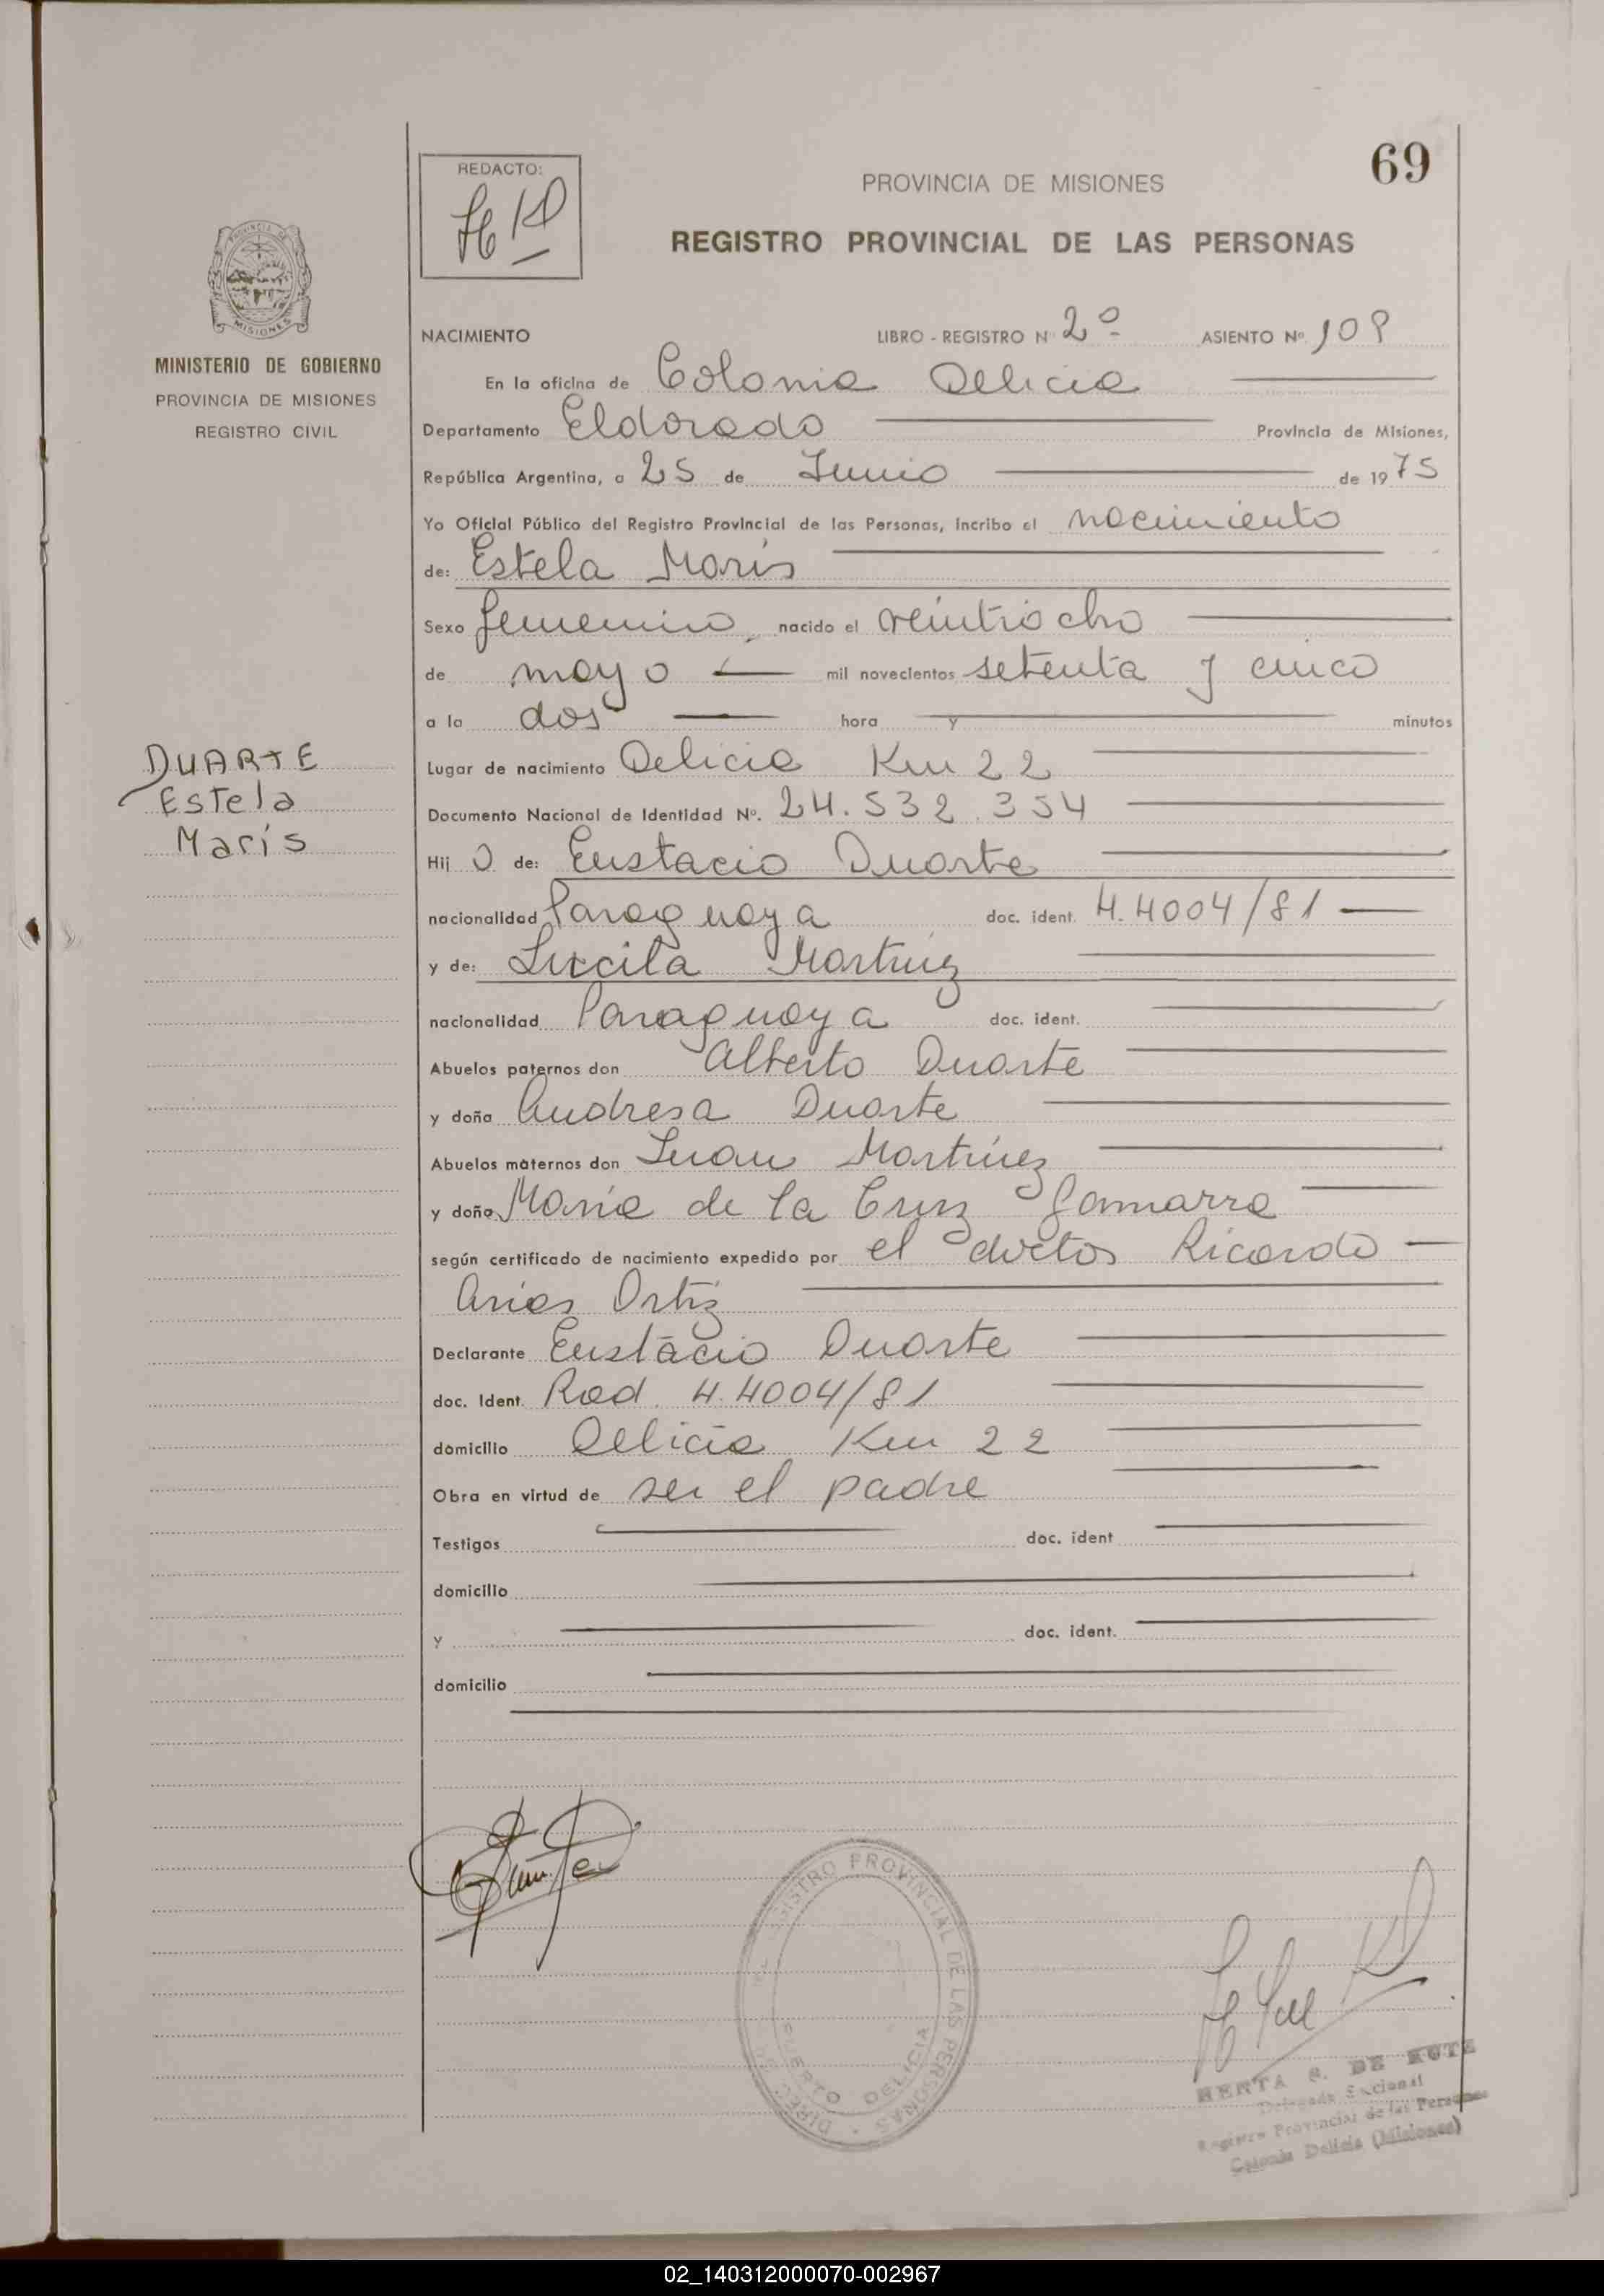 69
REDACTO:
PROVINCIA DE MISIONES
REGISTRO PROVINCIAL DE LAS PERSONAS
PROVINCIA DE MISIONES
MINISTERIO DE GOBIERNO
PROVINCIA DE MISIONES
REGISTRO CIVIL
DUARTE
Estela
Maris
NACIMIENTO LIBRO - REGISTRO Nº 2º ASIENTO Nº
En la oficina de Colonia Delicia
Departamento Eldorado Provincia de Misiones,
República Argentina, a 25 de Junio de 1975
Yo Oficial Público del Registro Provincial de las Personas, inscribo el nacimiento
de: Estela Maris
Sexo femenino, nacido el veintiocho
de mayo mil novecientos setenta y cinco
a la dos hora y minutos
Lugar de nacimiento Delicia Km 22
Documento Nacional de Identidad Nº. 24.532.354
Hij de: Eustacio Duarte
nacionalidad Paraguaya doc. ident. 4.4004/81
y de: Luccila Martínez
nacionalidad Paraguaya doc. ident.
Abuelos paternos don Alberto Duarte
y doña Andresa Duarte
Abuelos maternos don Juan Martínez
y doña María de la Cruz Gamarra
según certificado de nacimiento expedido por el doctor Ricardo
Arias Ortiz
Declarante Eustacio Duarte
doc. Ident. Rad. 4.4004/81
domicilio Delicia Km 22
Obra en virtud de ser el padre
Testigos doc. ident
domicilio
y doc. ident.
domicilio
REGISTRO PROVINCIAL DE LAS PERSONAS
PUERTO DELICIA
HERTA S. DE KUTZ
Registro Provincial de las Personas
Colonia Delicia (Misiones)
02_140312000070-002967